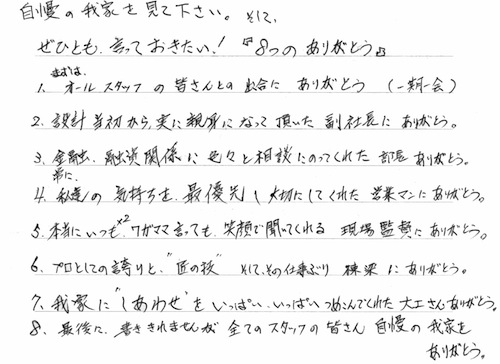 自慢の我家を見て下さい。そして、
ぜひとも、言っておきたい!『8つのありがとう』
まずは、
1、オールスタッフの皆さんとの出会に ありがとう (一期一会)
2、設計当初から、実に親身になって頂いた 副社長に ありがとう。
3、金融、融資関係に色々と相談にのってくれた 部長 ありがとう。
常に、
4、私達の 気持ちを、最優先し 大切にしてくれた 営業マンにありがとう。
5、本当にいつも×2 ワガママ言っても、笑顔で聞いてくれる 現場監督にありがとう。
6、プロとしての誇りと、"匠の技" そして、その仕事ぶり 棟梁 にありがとう。
7、我家に"しあわせ"を いっぱい、いっぱい つめこんでくれた 大工さんありがとう。
8、最後に、書ききれませんが 全てのスタッフの皆さん 自慢の我家を
ありがとう。